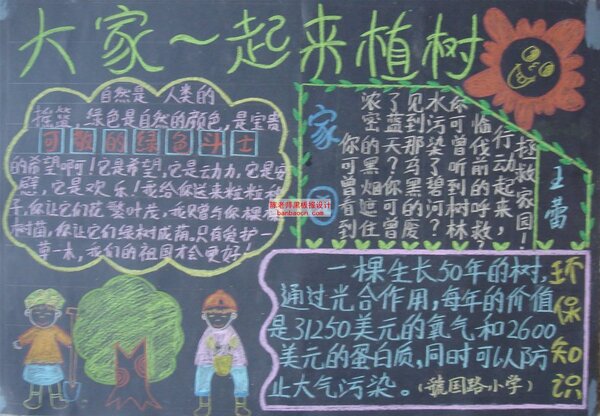 大家一起来植树
自然是人类的
摇篮,绿色是自然的颜色,是宝贵
可敬的绿色斗士
的希望啊!它是希望,它是动力,它是安
慰,它是欢乐!我给你送来粒粒种
子,你让它们花繁叶茂,我只曾与你棵棵
树苗,你让它们绿树成荫。只有爱护一
草一木,我们的祖国才会更好!
陈老师黑板报设计
banbaocn.com
家园
你可曾看到
浓密的黑烟遮住
了蓝天?你可曾
见到那乌黑的废
水污染了碧河?
你可曾听到树林
临伐前的呼救?
行动起来,
拯救家园!
王蕾
一棵生长50年的树,
通过光合作用,每年的价值
是31250美元的氧气和2600
美元的蛋白质,同时可以防
止大气污染。(虢国路小学)
环保知识